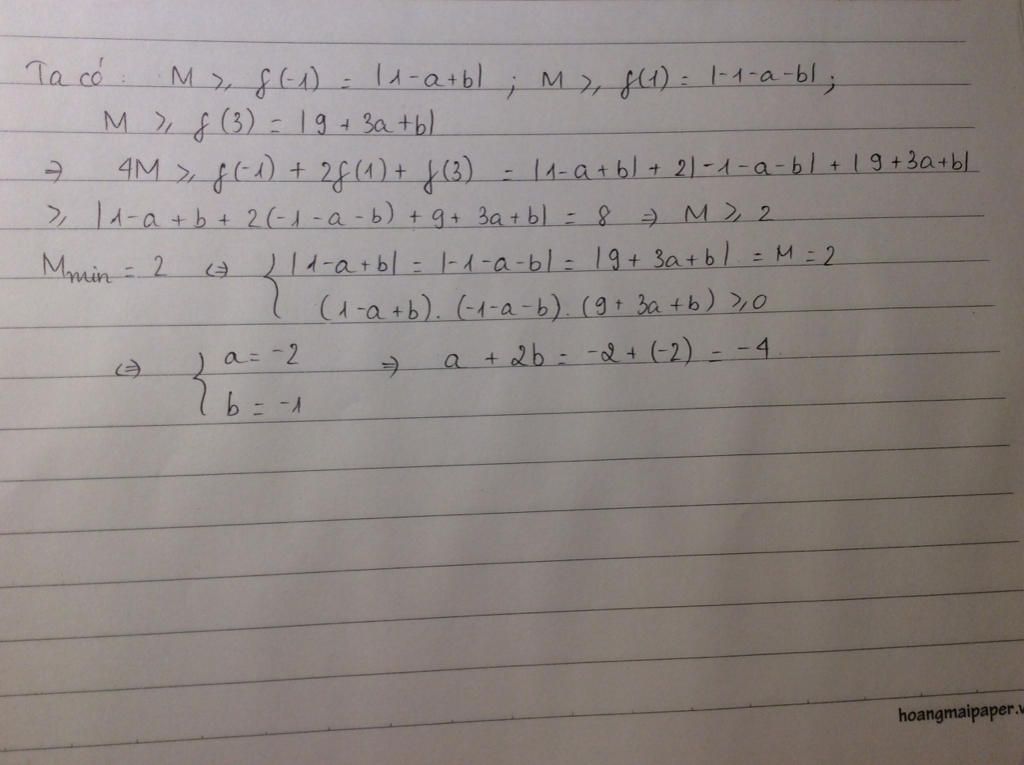 Ta có: M ⩾ f(-1) = |1-a+b| ; M ⩾ f(1) = |-1-a-b| ;
M ⩾ f(3) = |9 + 3a+b|
⇒ 4M ⩾ f(-1) + 2f(1) + f(3) = |1-a+b| + 2|-1-a-b| + |9+3a+b|
⩾ |1-a+b+2(-1-a-b)+9+3a+b| = 8 ⇒ M ⩾ 2
Mmin = 2 ⇔ { |1-a+b| = |-1-a-b| = |9+3a+b| = M = 2
(1-a+b).(-1-a-b).(9+3a+b) ⩾ 0
⇔ { a = -2 ⇒ a + 2b = -2 + (-2) = -4
b = -1
hoangmaipaper.v